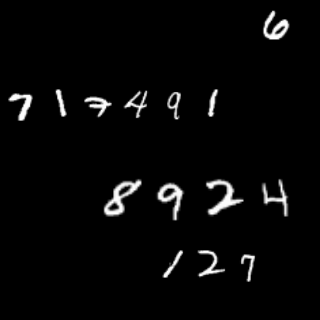 6
717491
8924
127